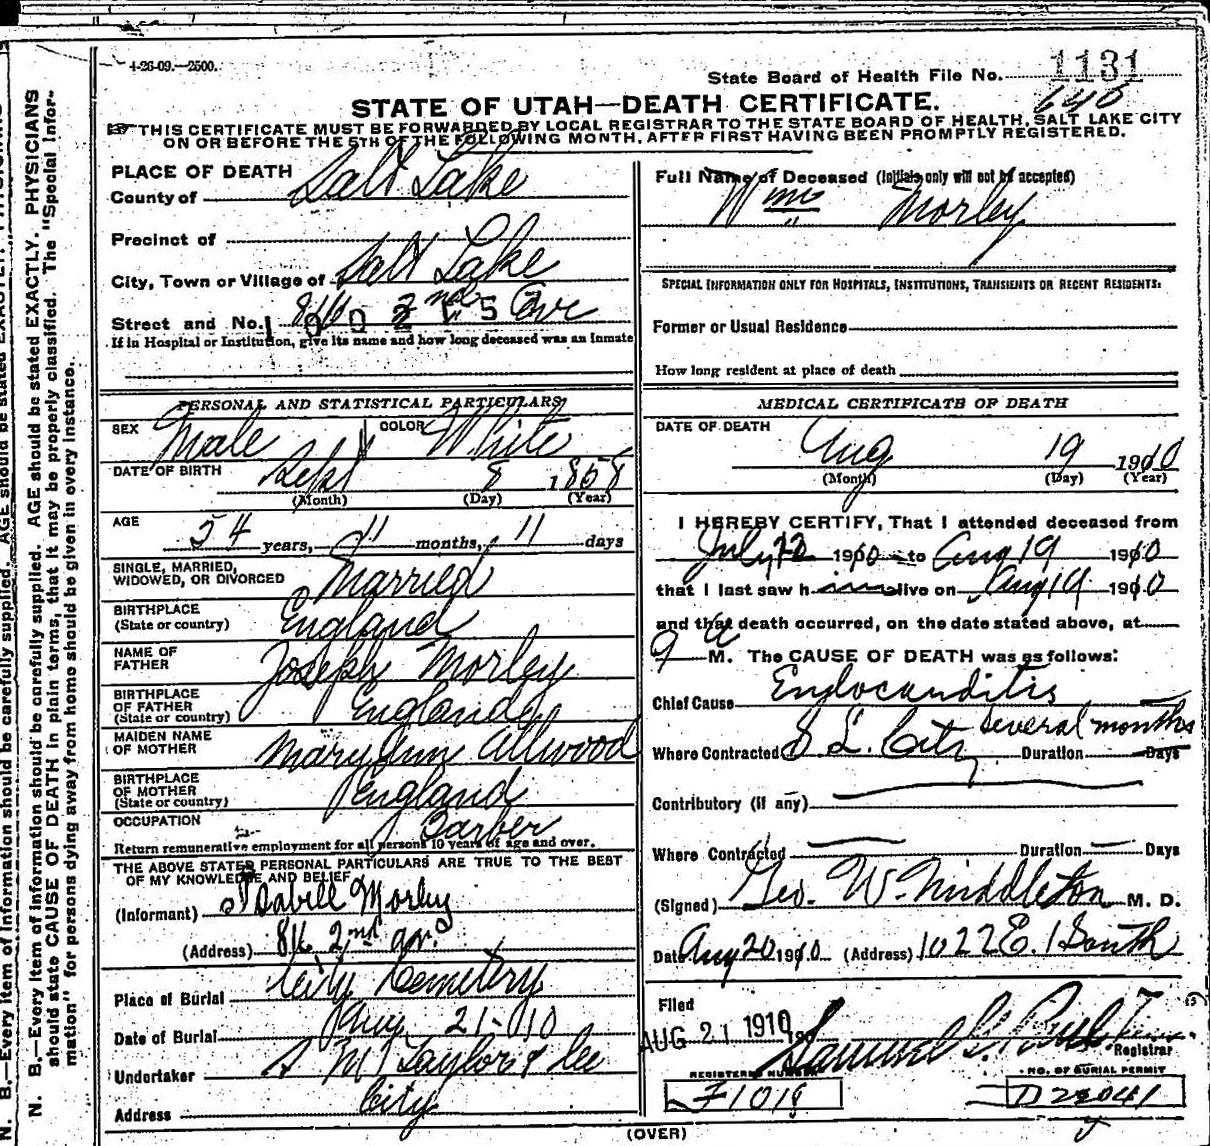 4-26-09.—2500.
State Board of Health File No. 1131
640
STATE OF UTAH—DEATH CERTIFICATE.
THIS CERTIFICATE MUST BE FORWARDED BY LOCAL REGISTRAR TO THE STATE BOARD OF HEALTH, SALT LAKE CITY
ON OR BEFORE THE 5TH OF THE FOLLOWING MONTH, AFTER FIRST HAVING BEEN PROMPTLY REGISTERED.
PLACE OF DEATH
County of Salt Lake
Precinct of
City, Town or Village of Salt Lake
Street and No. 816 2nd Ave
1 0 0 2 1 5
If in Hospital or Institution, give its name and how long deceased was an inmate
PERSONAL AND STATISTICAL PARTICULARS
SEX Male COLOR White
DATE OF BIRTH Sept 8 1858
(Month) (Day) (Year)
AGE 54 years, 11 months, 11 days
SINGLE, MARRIED,
WIDOWED, OR DIVORCED Married
BIRTHPLACE
(State or country) England
NAME OF
FATHER Joseph Morley
BIRTHPLACE
OF FATHER
(State or country) England
MAIDEN NAME
OF MOTHER Mary Ann Allwood
BIRTHPLACE
OF MOTHER
(State or country) England
OCCUPATION Barber
Return remunerative employment for all persons 10 years of age and over.
THE ABOVE STATED PERSONAL PARTICULARS ARE TRUE TO THE BEST
OF MY KNOWLEDGE AND BELIEF
(Informant) Isabell Morley
(Address) 816 2nd av.
Place of Burial City Cemetery
Date of Burial Aug 21-10
Undertaker S M Taylor & Co
Address City
Full Name of Deceased (Initials only will not be accepted)
Wm Morley
SPECIAL INFORMATION ONLY FOR HOSPITALS, INSTITUTIONS, TRANSIENTS OR RECENT RESIDENTS:
Former or Usual Residence
How long resident at place of death
MEDICAL CERTIFICATE OF DEATH
DATE OF DEATH
Aug 19 1910
(Month) (Day) (Year)
I HEREBY CERTIFY, That I attended deceased from
July 22 1910 to Aug 19 1910
that I last saw him alive on Aug 19 1910
and that death occurred, on the date stated above, at
9 a M. The CAUSE OF DEATH was as follows:
Chief Cause Endocarditis
several months
Where Contracted S L. City Duration Days
Contributory (if any)
Where Contracted Duration Days
(Signed) Geo. W. Middleton M. D.
Date Aug 20 1910 (Address) 1022 E. 1 South
Filed
AUG 21 1910 190
Samuel G. Paul
Registrar
REGISTERED NUMBER
F1019
NO. OF BURIAL PERMIT
D22041
(OVER)
N. B.—Every item of information should be carefully supplied. AGE should be stated EXACTLY. PHYSICIANS
should state CAUSE OF DEATH in plain terms, that it may be properly classified. The "Special Infor-
mation" for persons dying away from home should be given in every instance.